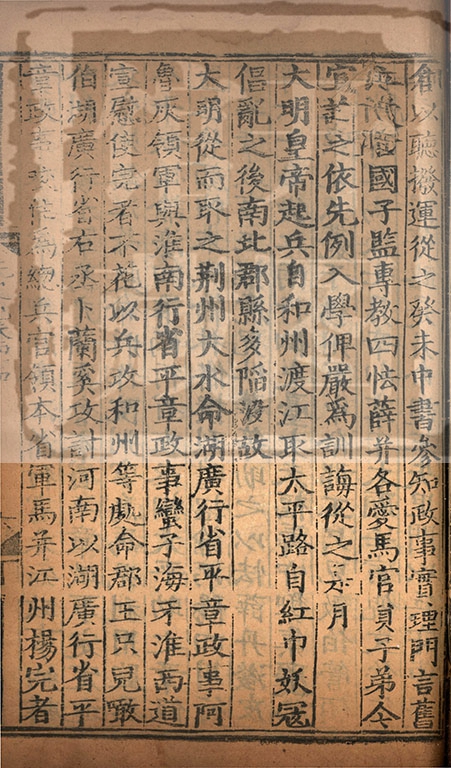 倉以聽搬運從之癸未中書參知政事實理門言舊
國子監專教四怯薛并各愛馬官員子弟今
宜諭之依先例入學俾嚴爲訓誨從之是月
大明皇帝起兵自和州渡江取太平路自紅巾妖寇
倡亂之後南北郡縣多陷沒故
大明從而取之荆州大水命湖廣行省平章政事阿
魯灰領軍與淮南行省平章政事蠻子海牙淮西道
宣慰使完者不花以兵攻和州等處命郡王只兒㗳
伯湖廣行省右丞卜蘭奚攻討河南以湖廣行省平
章政事 爲總兵官領本省軍馬并江州楊完者